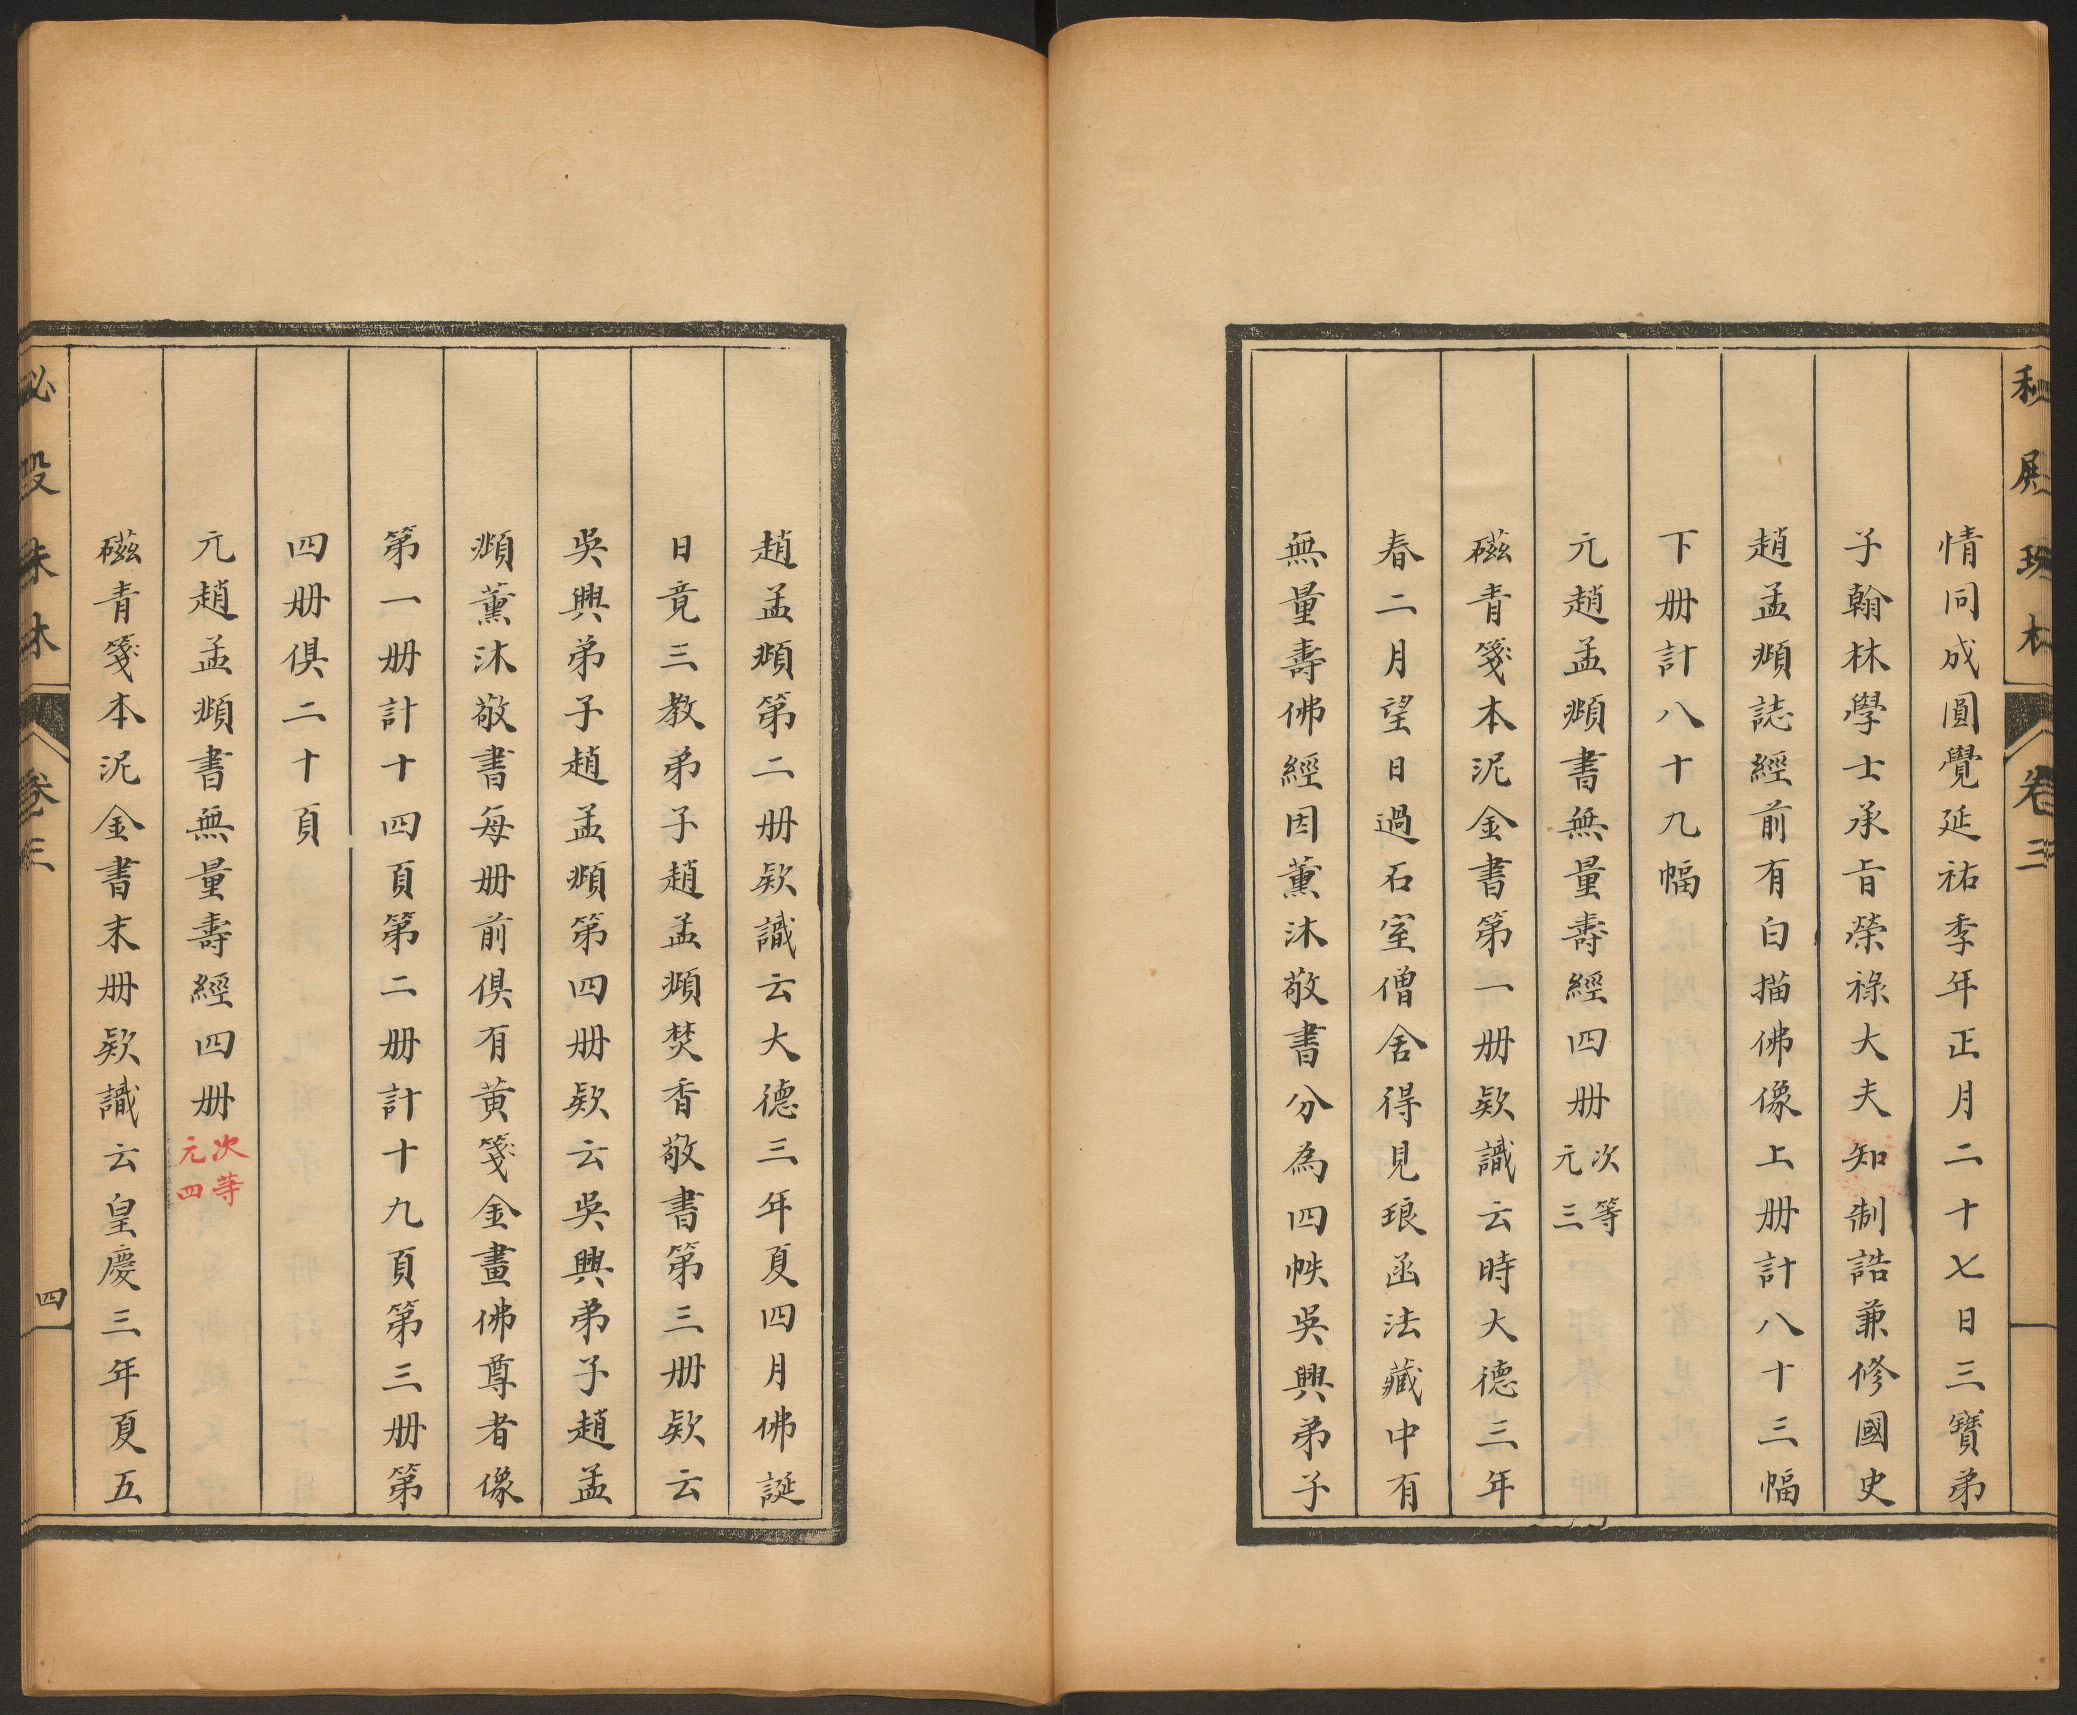 情同成圓覺延祐季年正月二十七日三寶弟
子翰林學士承旨榮祿大夫知制誥兼修國史
趙孟頫誌經前有白描佛像上册計八十三幅
下册計八十九幅
元趙孟頫書無量壽經四册次等元三
磁青箋本泥金書第一册欵識云時大德三年
春二月望日過石室僧舍得見琅函法藏中有
無量壽佛經因薰沐敬書分為四帙吳興弟子
趙孟頫第二册欵識云大德三年夏四月佛誕
日竟三教弟子趙孟頫焚香敬書第三册欵云
吳興弟子趙孟頫第四册欵云吳興弟子趙孟
頫薰沐敬書每册前俱有黄箋金畫佛尊者像
第一册計十四頁第二册計十九頁第三册第
四册俱二十頁
元趙孟頫書無量壽經四册次等元四
磁青箋本泥金書末册欵識云皇慶三年夏五
祕殿珠林 卷三 四